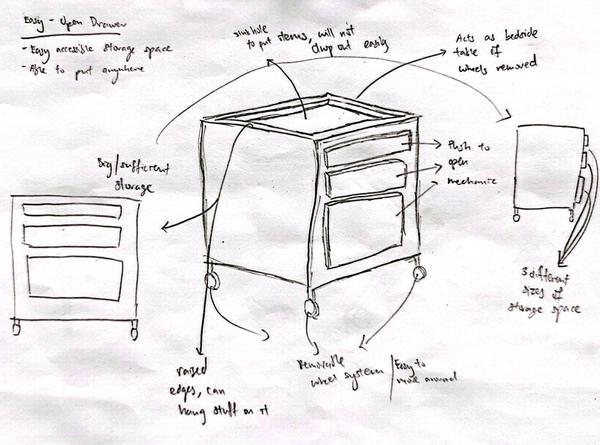 Easy - Open Drawer
- Easy accessible storage space
- Able to put anywhere
sinkhole
to put items, will not
drop out easily
Acts as bedside
table if
wheels removed
Big/sufficient
storage
Push to
open
mechanic
3 different
sizes of
storage space
raised
edges, can
hang stuff on it
removable
wheel system
/Easy to
move around